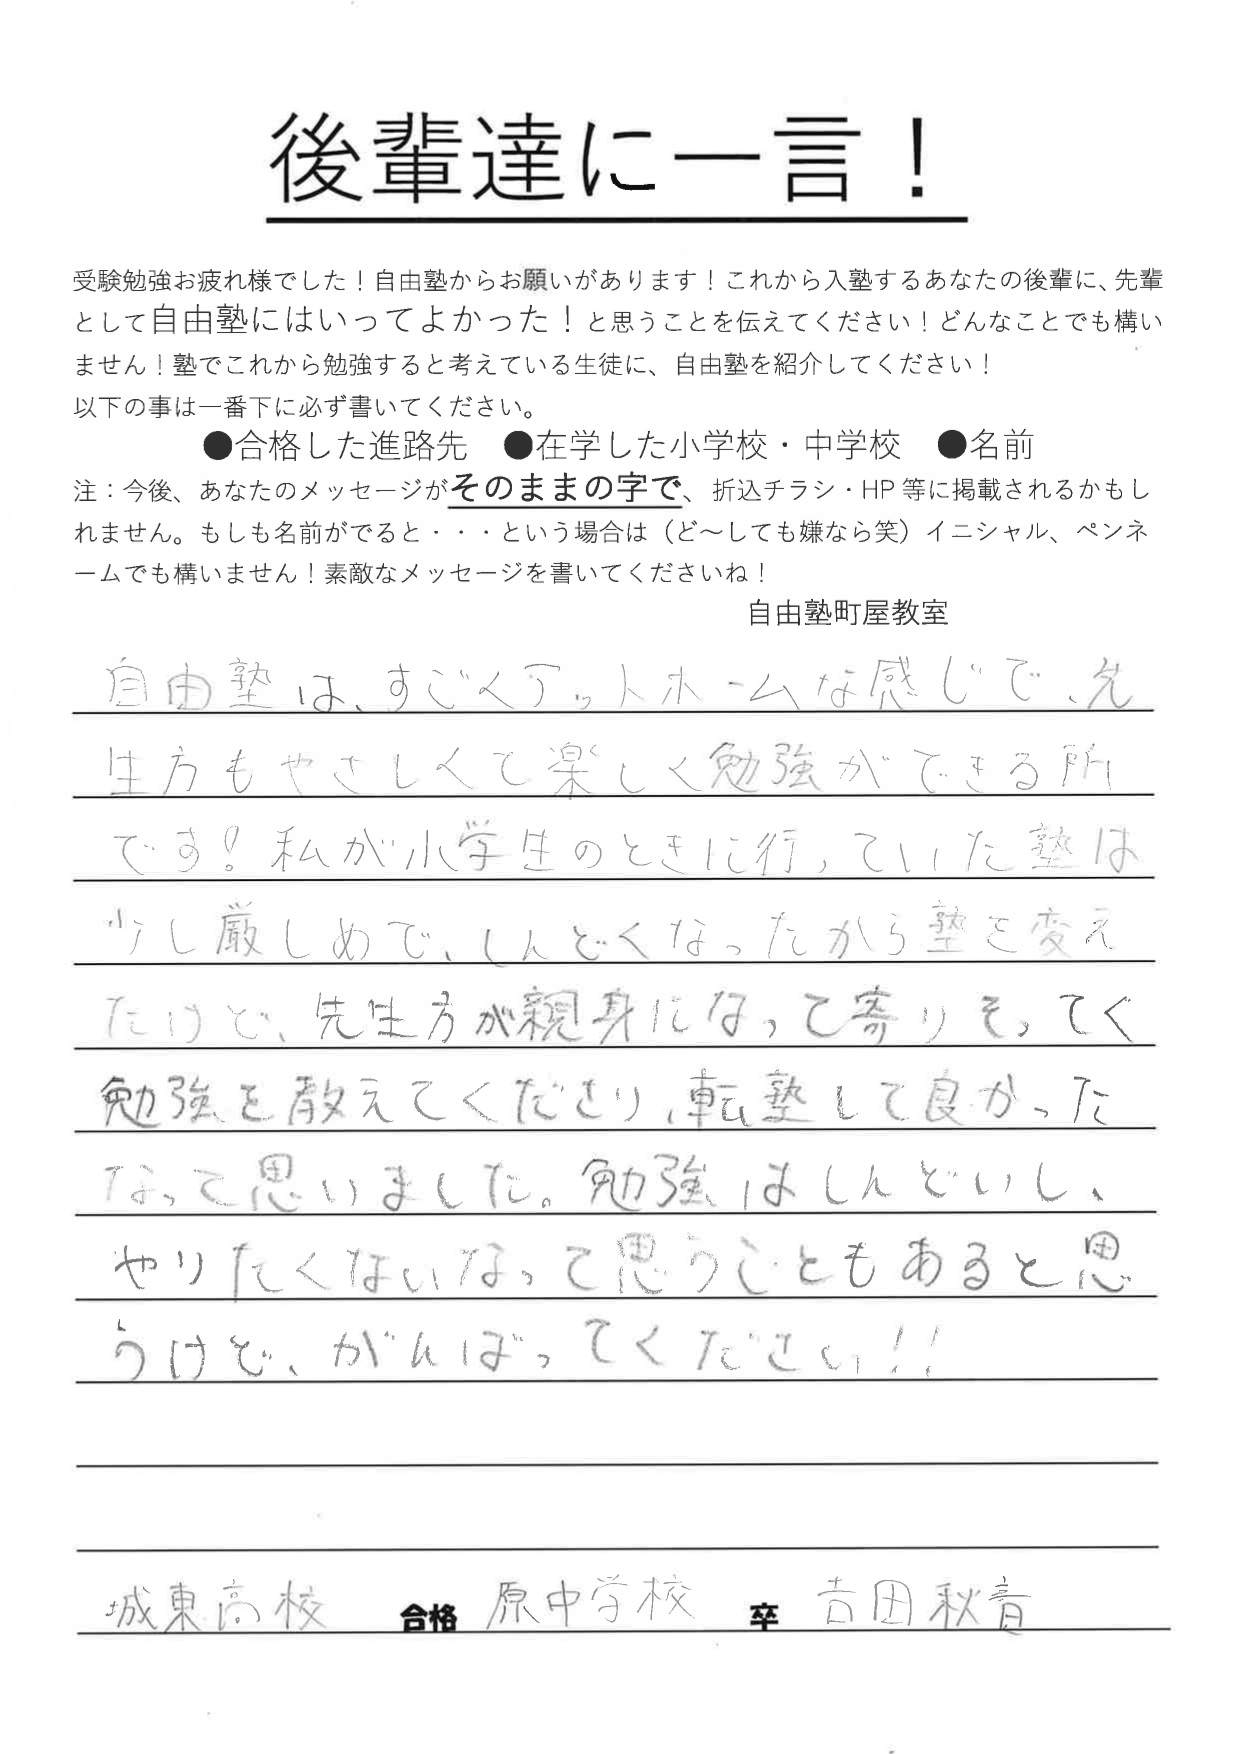 後輩達に一言！
受験勉強お疲れ様でした！自由塾からお願いがあります！これから入塾するあなたの後輩に、先輩
として自由塾にはいってよかった！と思うことを伝えてください！どんなことでも構い
ません！塾でこれから勉強すると考えている生徒に、自由塾を紹介してください！
以下の事は一番下に必ず書いてください。
●合格した進路先　●在学した小学校・中学校　●名前
注：今後、あなたのメッセージがそのままの字で、折込チラシ・HP 等に掲載されるかもし
れません。もしも名前がでると・・・という場合は（ど～しても嫌なら笑）イニシャル、ペンネ
ームでも構いません！素敵なメッセージを書いてくださいね！
自由塾町屋教室
自由塾は、すごくアットホームな感じで、先
生方もやさしくて楽しく勉強ができる所
です！私が小学生のときに行っていた塾は
少し厳しめで、しんどくなったから塾を変え
たけど、先生方が親身になって寄りそってく
勉強を教えてくださり、転塾して良かった
なって思いました。勉強はしんどいし、
やりたくないなって思うこともあると思
うけど、がんばってください！！
城東高校 合格 原中学校 卒 吉田秋音